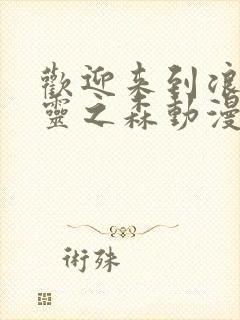 歡迎来到浪
靈之森動漫
術殊